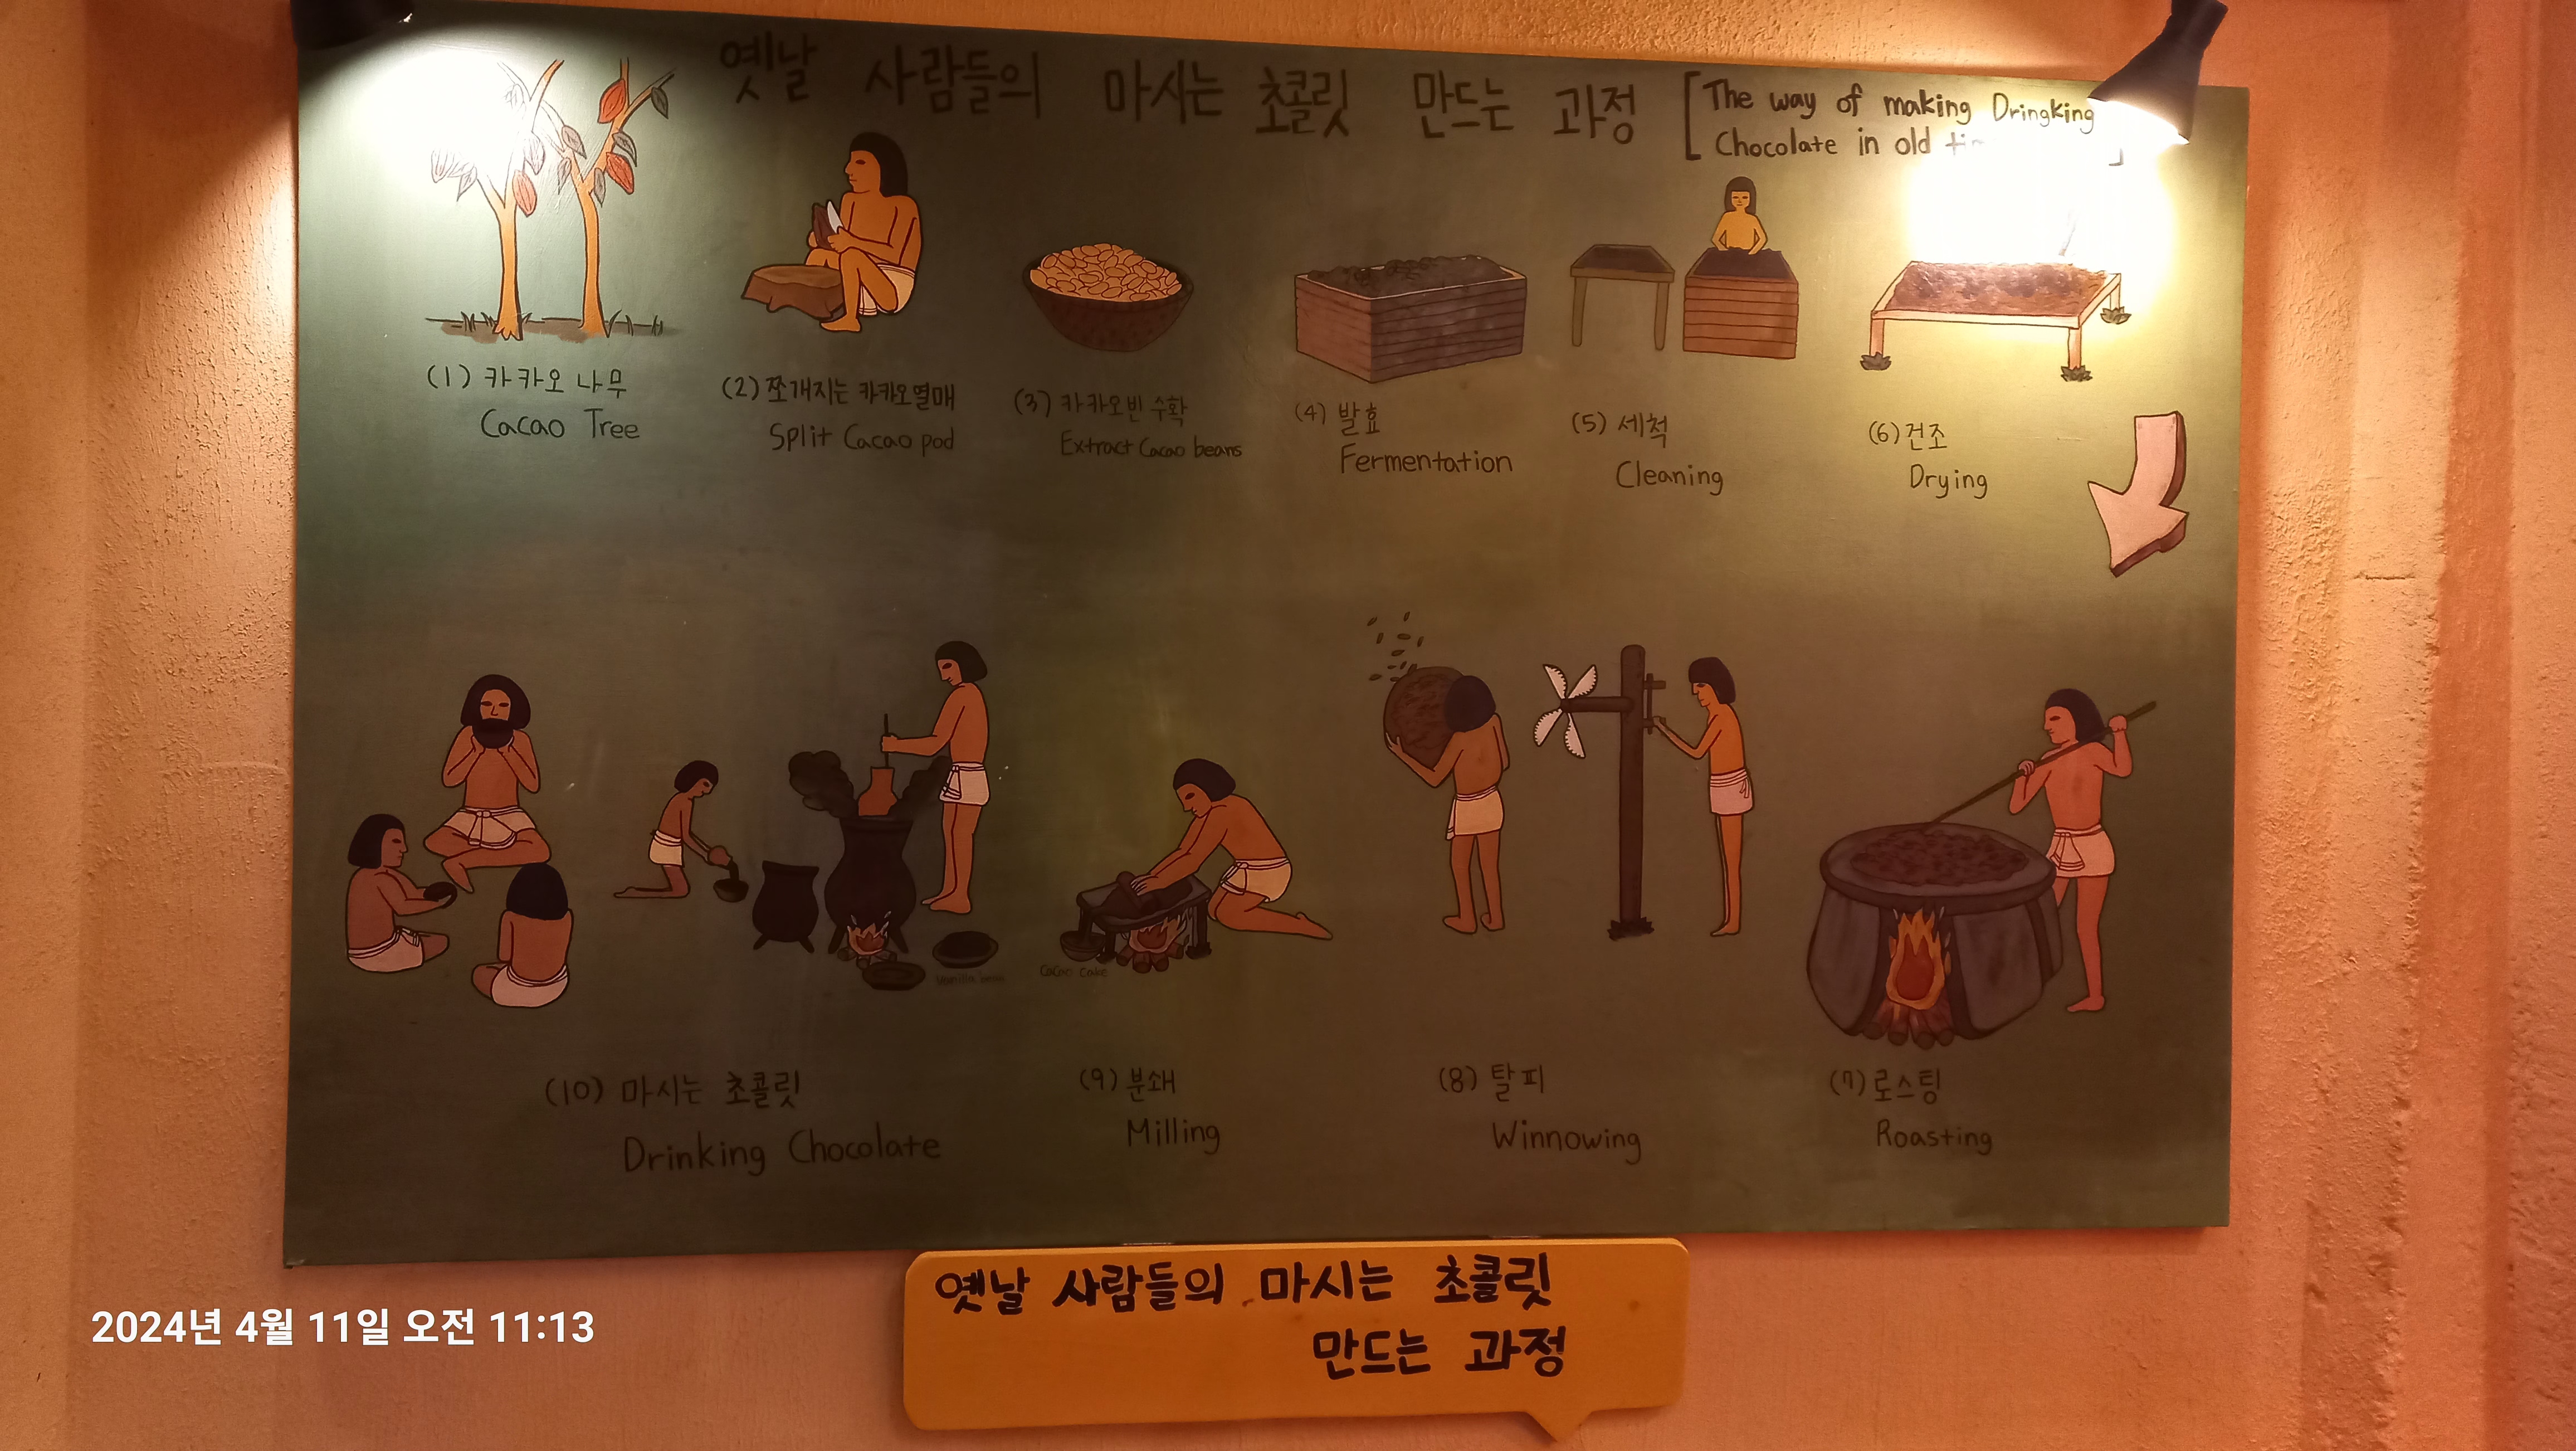 옛날 사람들의 마시는 초콜릿 만드는 과정
[The way of making Dringking
Chocolate in old
(1) 카카오 나무
Cacao Tree
(2) 쪼개지는 카카오열매
Split Cacao pod
(3) 카카오빈 수확
Extract Cacao beans
(4) 발효
Fermentation
(5) 세척
Cleaning
(6) 건조
Drying
(7) 로스팅
Roasting
(8) 탈피
Winnowing
(9) 분쇄
Milling
Cacao Cake
(10) 마시는 초콜릿
Drinking Chocolate
Vanilla
옛날 사람들의 마시는 초콜릿
만드는 과정
2024년 4월 11일 오전 11:13